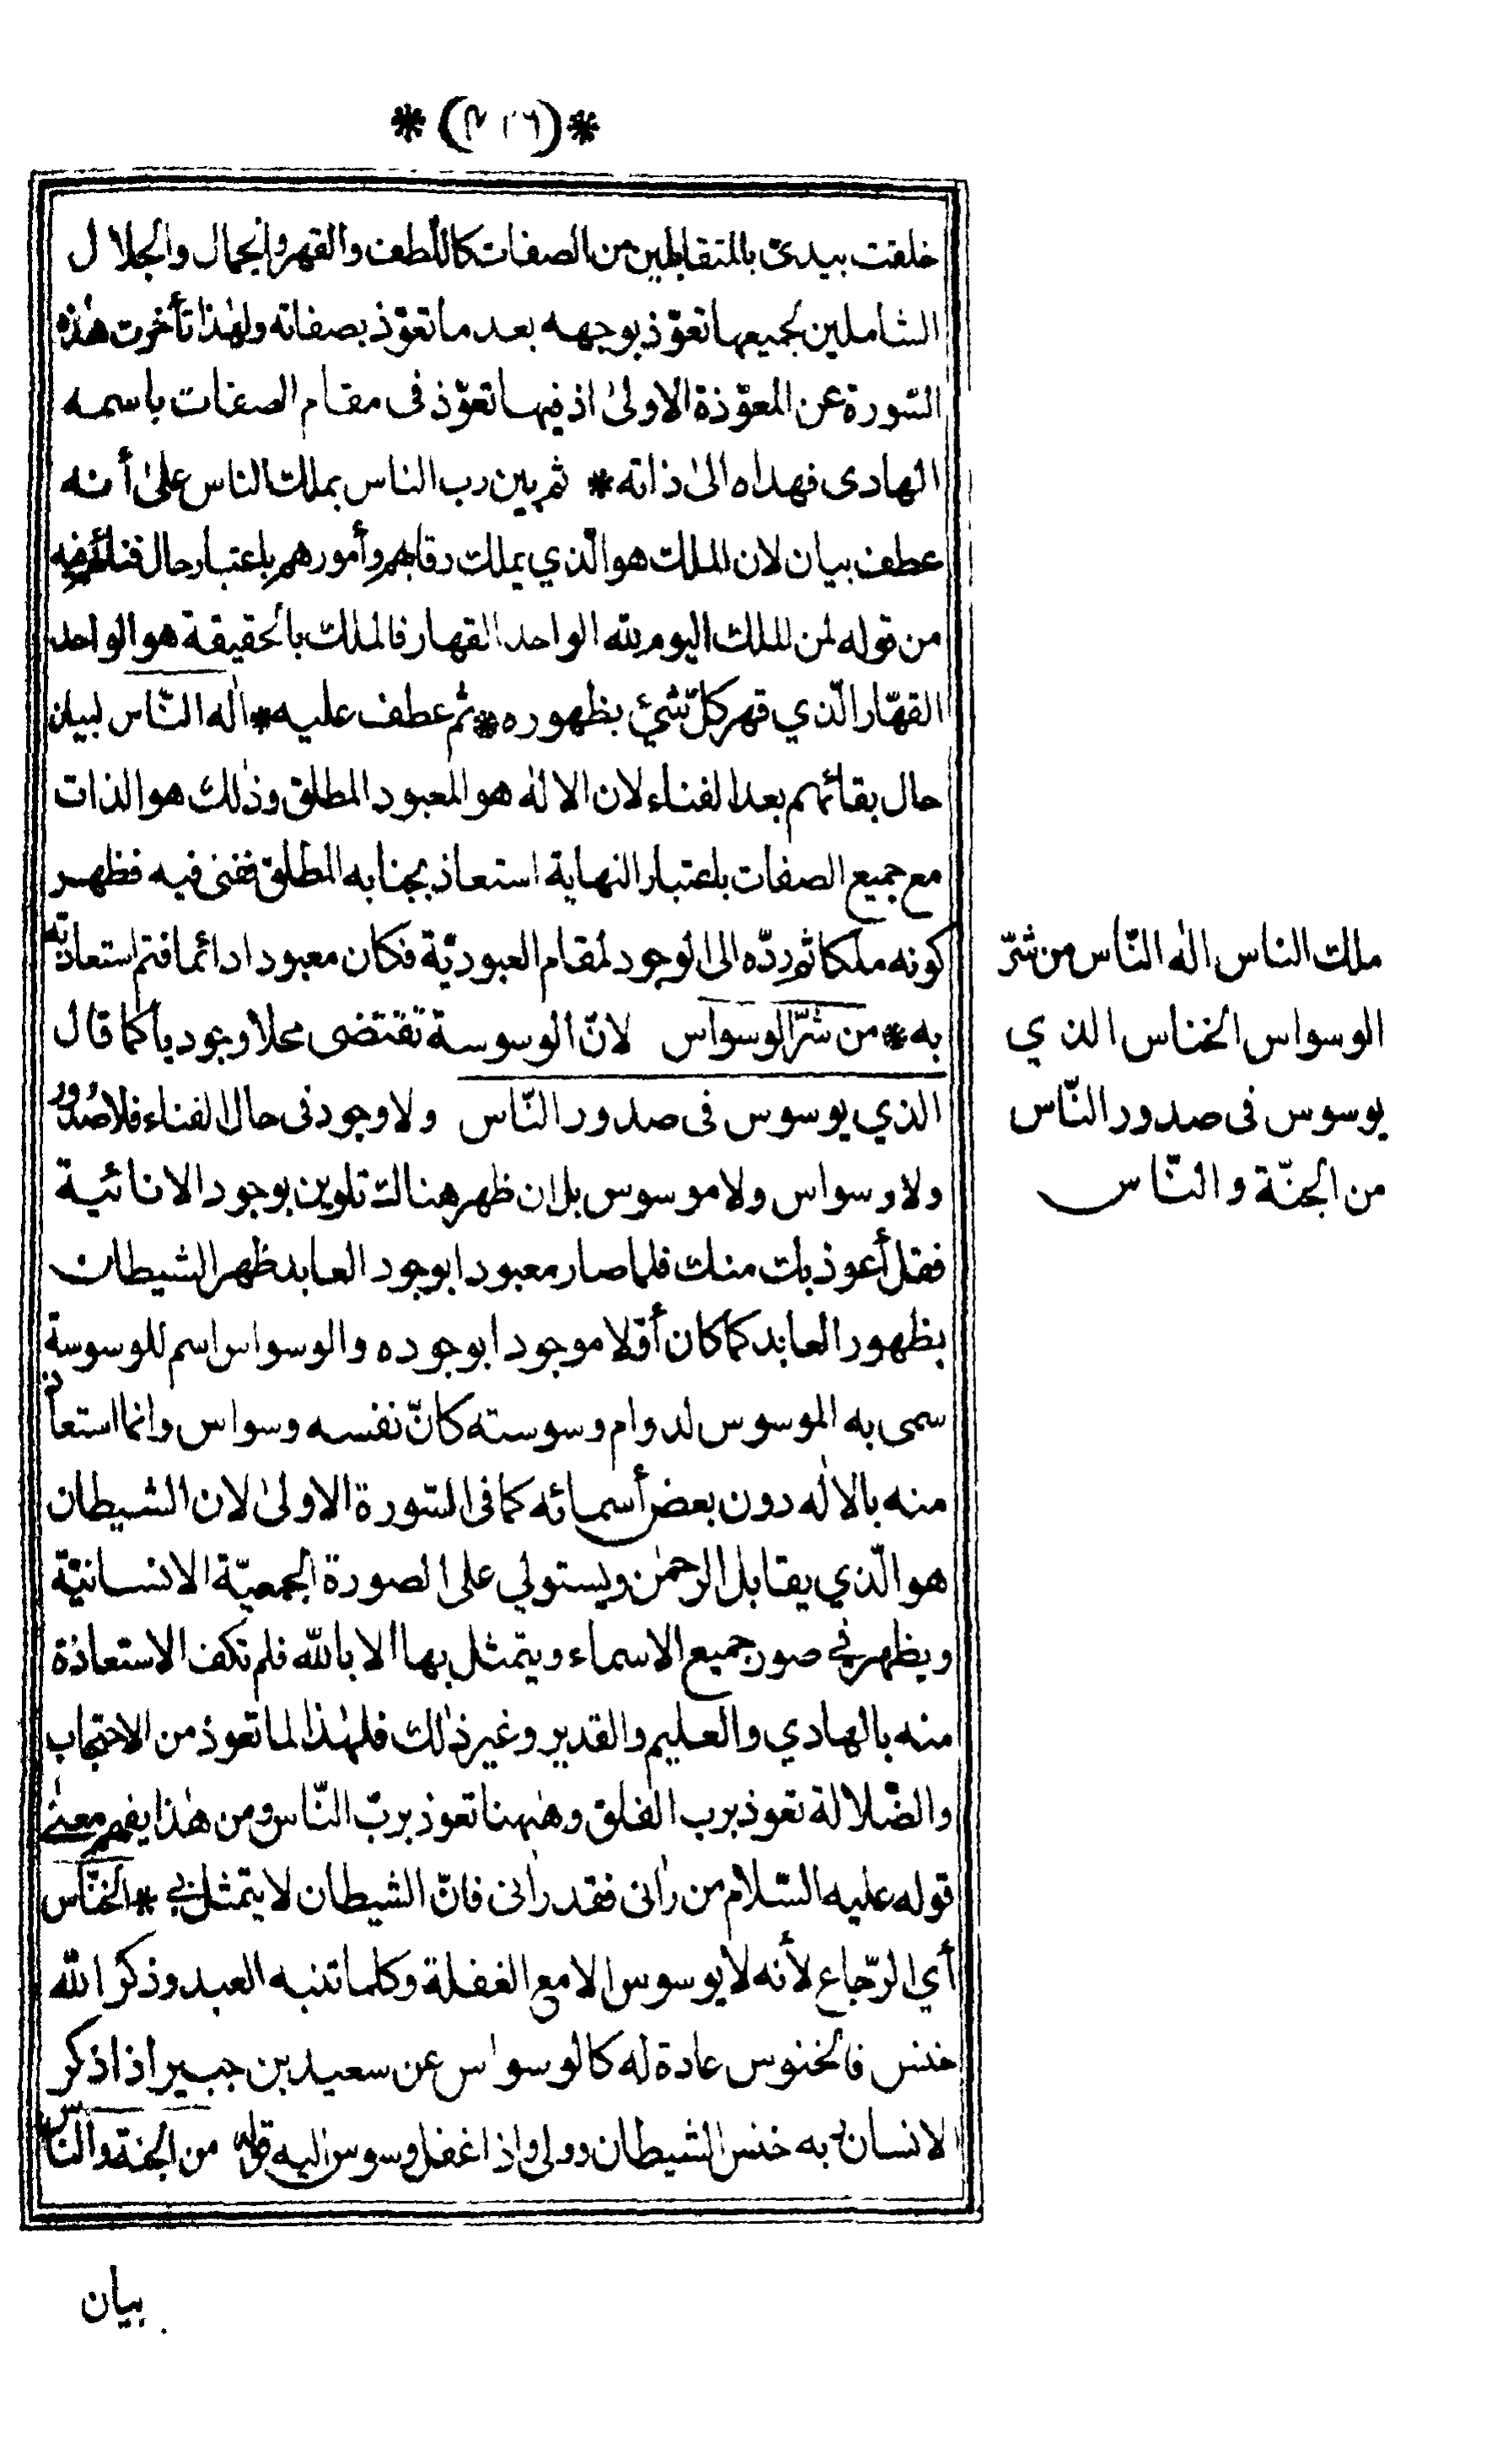 *(٤١٦)*
خلقت بيدىّ بالمتقابلين من الصفات كاللطف والقهر والجمال والجلال
الشاملين لجميعها تعوّذ بوجهه بعد ما تعوّذ بصفاته ولهٰذا تأخرت هٰذه
السّورة عن المعوّذة الاولىٰ اذ فيها تعوّذ فى مقام الصفات باسمه
الهادى فهداه الىٰ ذاته * ثم بين رب الناس بملك الناس علىٰ أنه
عطف بيان لان الملك هو الّذي يملك رقابهم وأمورهم باعتبار حال فنائهم فيه
من قوله لمن الملك اليوم لله الواحد القهار فالملك بالحقيقة هو الواحد
القهّار الّذي قهر كلّ شيْء بظهوره * ثم عطف عليه * الٰه النّاس لبيان
حال بقائهم بعد الفناء لان الالٰه هو المعبود المطلق وذٰلك هو الذات
مع جميع الصفات باعتبار النهاية استعاذ بجنابه المطلق ففنى فيه فظهر
كونه ملكا ثم ردّه الى الوجود لمقام العبوديّة فكان معبودا دائما فتم استعاذته
به * من شرّ الوسواس لانّ الوسوسة تقتضى محلا وجوديا كما قال
الذي يوسوس فى صدور النّاس ولا وجود فى حال الفناء فلا صُدُور
ولا وسواس ولا موسوس بل ان ظهر هنالك تلوين بوجود الانائية
فقل أعوذ بك منك فلما صار معبودا بوجود العابد ظهر الشيطان
بظهور العابد كما كان أوّلا موجودا بوجوده والوسواس اسم للوسوسة
سمى به الموسوس لدوام وسوسته كانّ نفسه وسواس وانما استعاذ
منه بالالٰه دون بعض أسمائه كما فى السّورة الاولىٰ لان الشيطان
هو الّذي يقابل الرحمٰن ويستولي على الصورة الجمعيّة الانسانيّة
ويظهر في صور جميع الاسماء ويتمثل بها الا بالله فلم تكف الاستعاذة
منه بالهادي والعليم والقدير وغير ذٰلك فلهٰذا لما تعوذ من الاحتجاب
والضّلالة تعوذ برب الفلق وهٰهنا تعوذ بربّ النّاس ومن هٰذا يفهم معنىٰ
قوله عليه السّلام من راٰنى فقد راٰنى فانّ الشيطان لا يتمثل بي * الخنّاس
أي الرّجاع لأنه لا يوسوس الا مع الغفلة وكلما تنبه العبد وذكر الله
خنس فالخنوس عادة له كالوسواس عن سعيد بن جبير اذا ذكر
الانسان ربه خنس الشيطان وولى واذا غفل وسوس اليه قوله من الجنة والناس
بيان
ملك الناس الٰه النّاس من شرّ
الوسواس الخناس الذي
يوسوس فى صدور النّاس
من الجنّة والنّاس